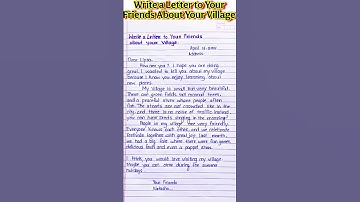 Write a Letter to Your
Friends About Your Village
Write a Letter to Your Friends
about your Village.
April
Address
Dear
How are you? I hope you are doing
great. I wanted to tell you about my village
because I know you enjoy learning about
new places.
My village is small but very beautiful.
There are green fields all around, trees,
and a peaceful river where people often
fish. The streets are not crowded like in the
city, and there is no noise of traffic. Instead
you can hear birds singing in the morning!
People in my village are very friendly.
Everyone knows each other, and we celebrate
festivals together with great joy. Last month,
we had a big fair where there were fun games,
delicious food and even a puppet show.
I think, you would love visiting my village.
Maybe you can come during the summer
holidays.
Your Friends